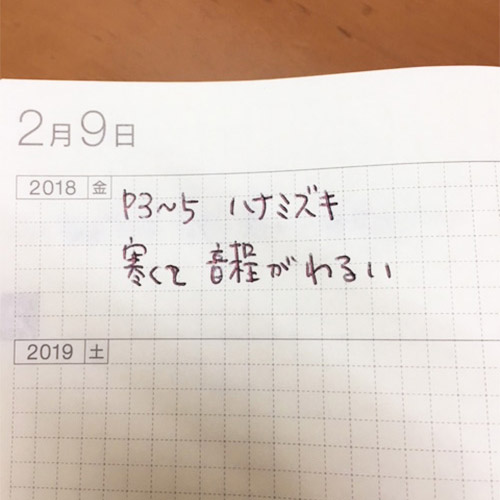 2月9日
2018 金 P3~5 ハナミズキ
寒くて 音程がわるい
2019 土